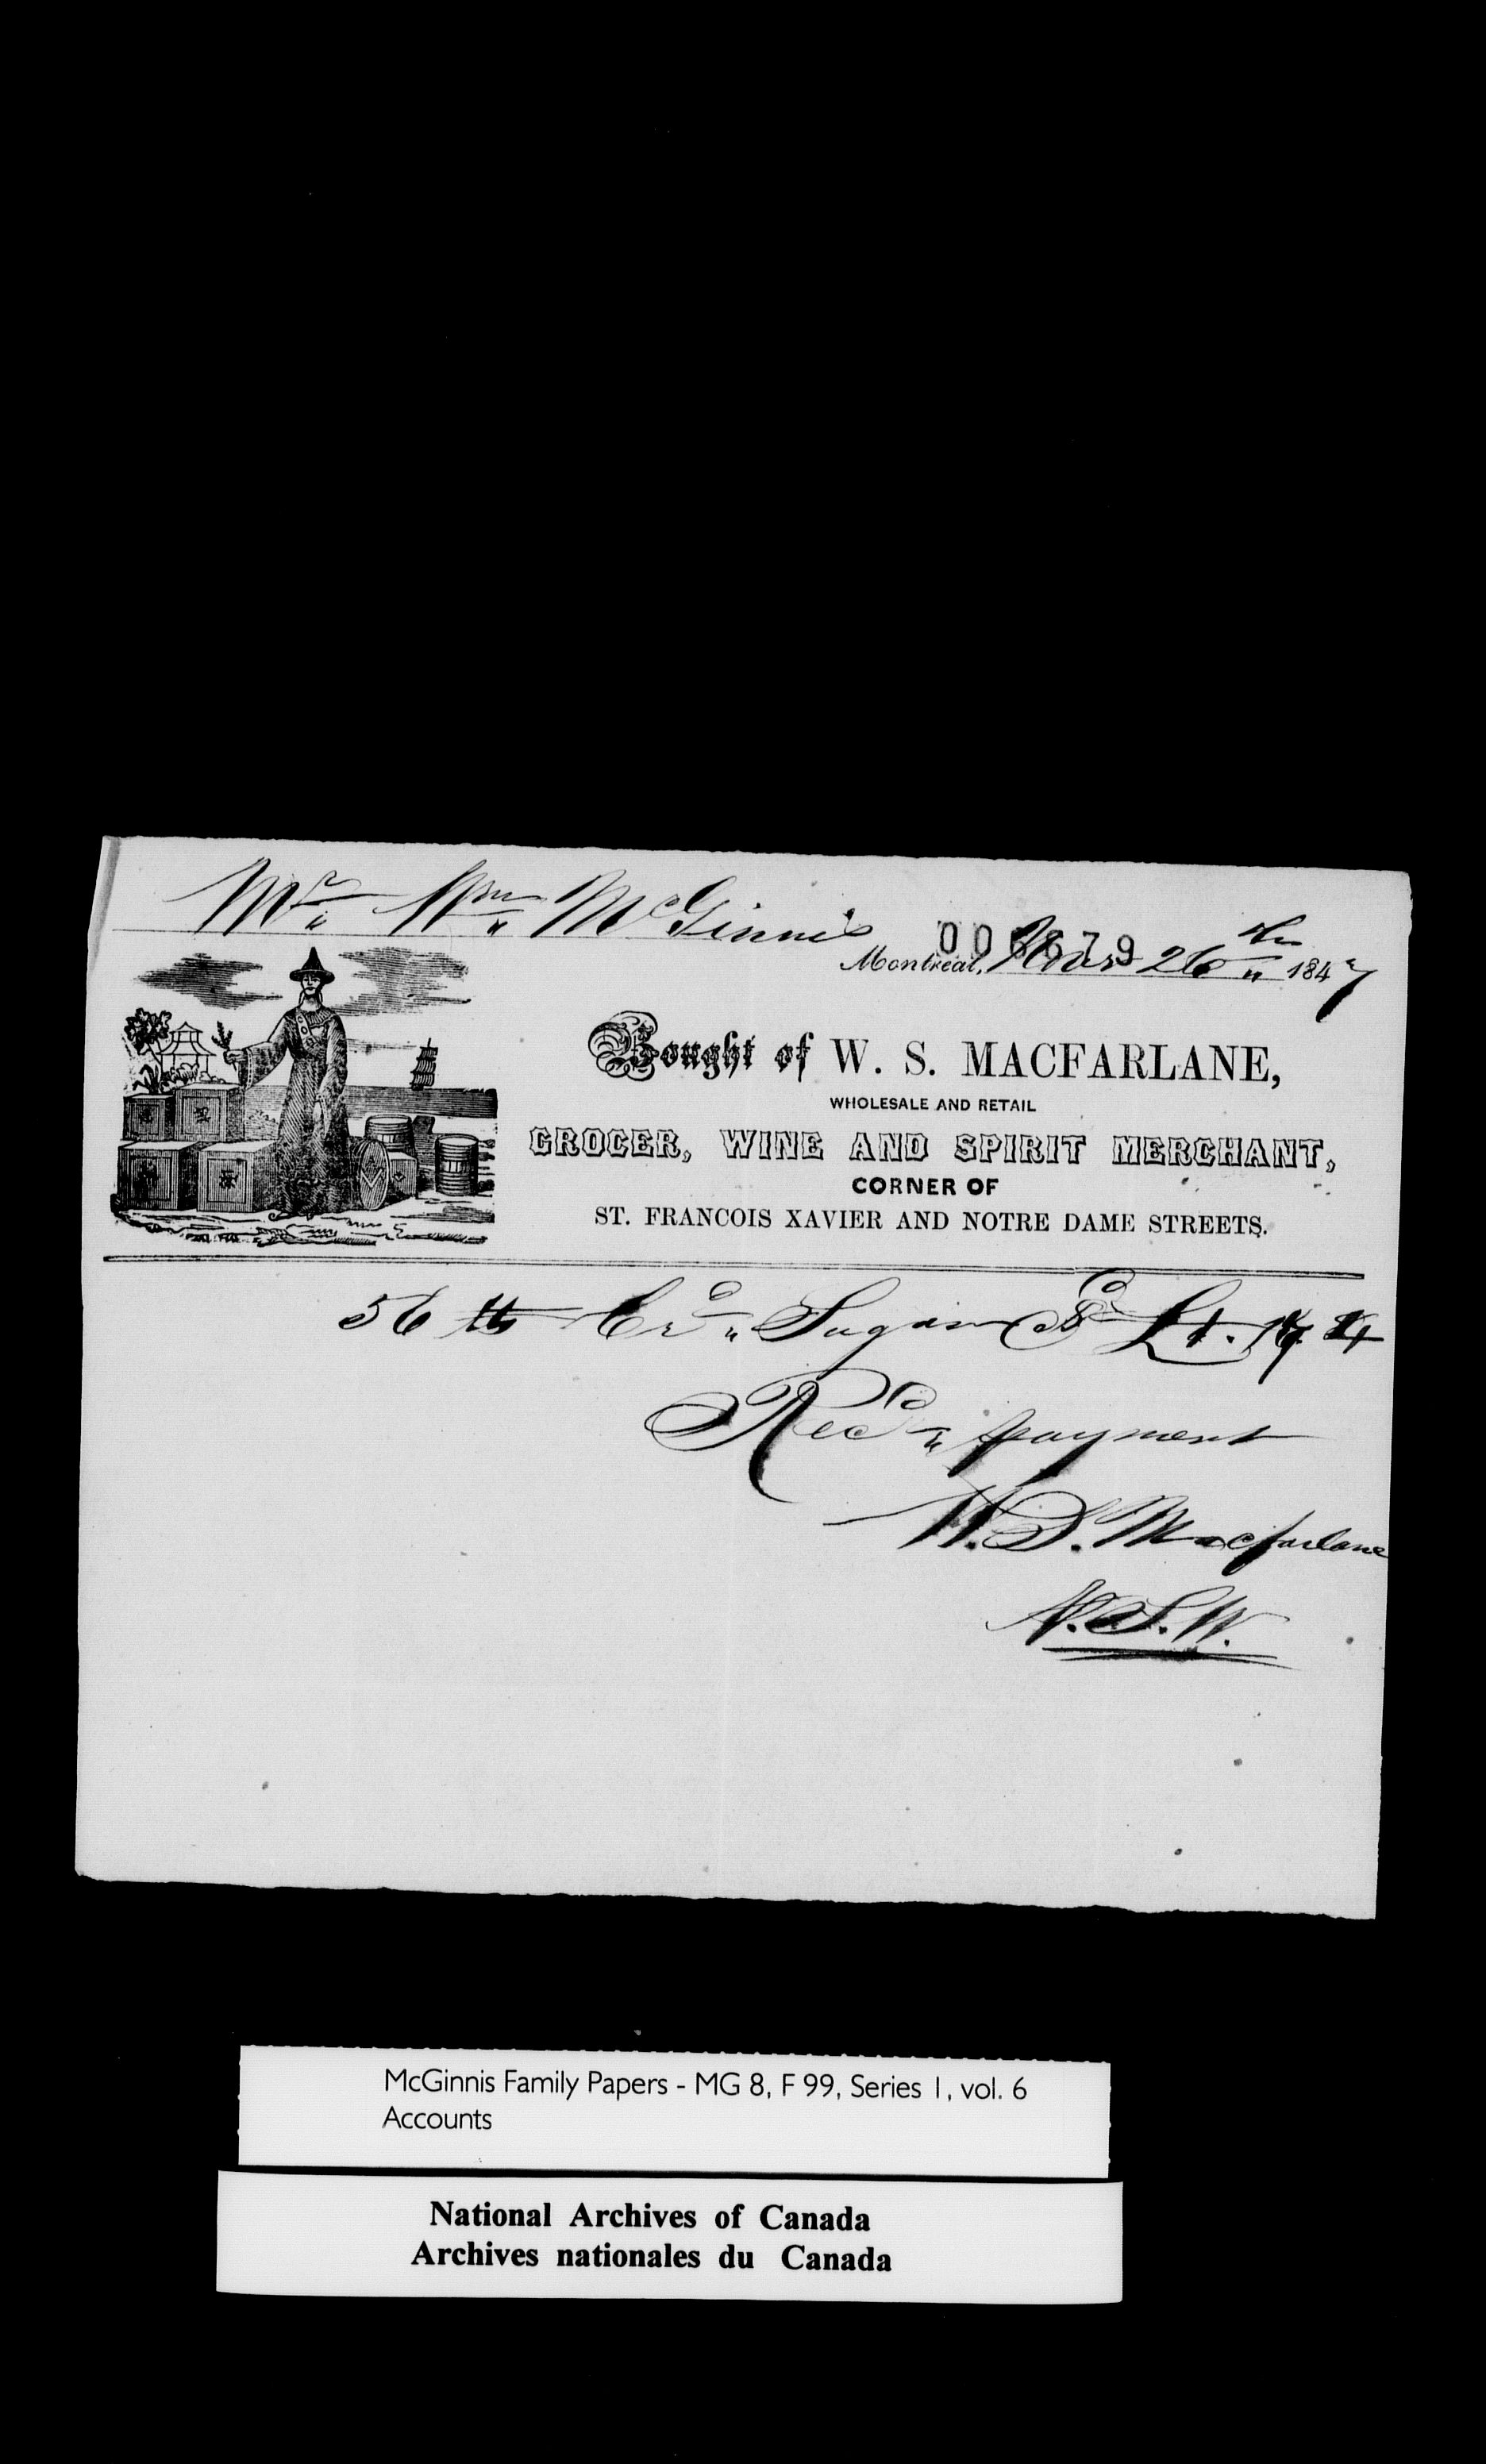 Mr Wm McGinnis
006679
Montreal, Novr 26th 1847
Bought of W. S. MACFARLANE,
WHOLESALE AND RETAIL
GROCER, WINE AND SPIRIT MERCHANT,
CORNER OF
ST. FRANCOIS XAVIER AND NOTRE DAME STREETS.
56 lb Crd Sugar £1. 4
Recd payment
W. S. Macfarlane
W.S.W.
McGinnis Family Papers - MG 8, F 99, Series 1, vol. 6
Accounts
National Archives of Canada
Archives nationales du Canada